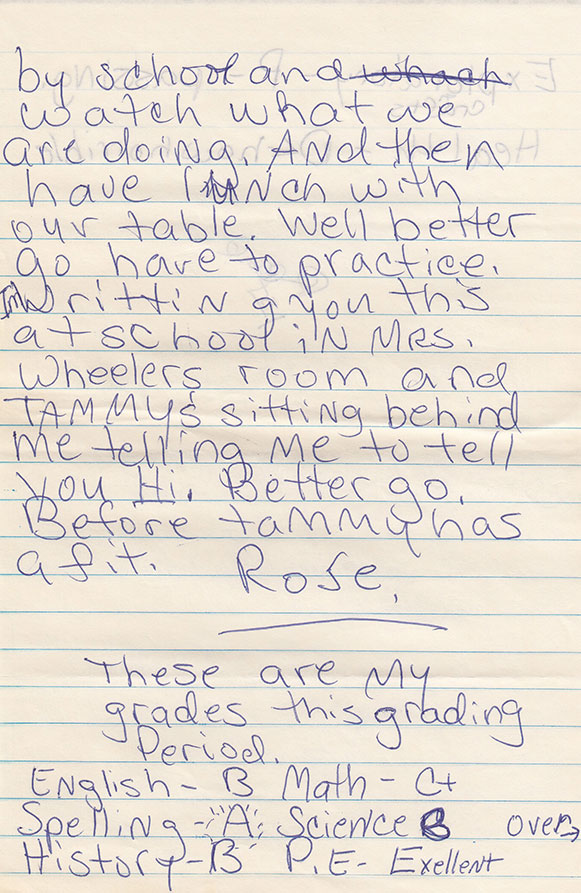 by school and whach
watch what we
are doing. ANd then
have lUNch with
our table. Well better
go have to practice.
Im writtiNg you this
at school iN MRs.
Wheelers room and
TAMMYs sitting behind
me telling Me to tell
you Hi. Better go.
Before taMMy has
a fit. Rose.
These are My
grades this grading
Period.
ENglish - B Math - C+
Spelling - A Science B over→
History - B P.E - Exellent